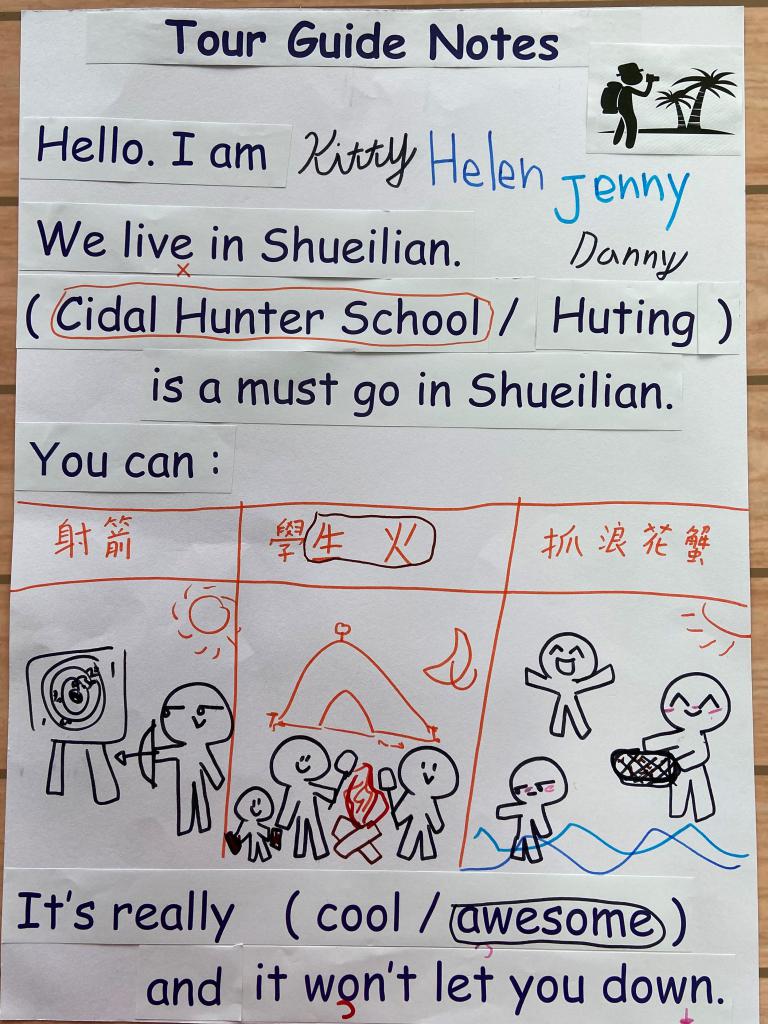 Tour Guide Notes
Hello. I am Kitty Helen Jenny
Danny
We live in Shueilian.
( Cidal Hunter School / Huting )
is a must go in Shueilian.
You can :
射箭 學生火 抓浪花蟹
It's really ( cool / awesome )
and it won't let you down.